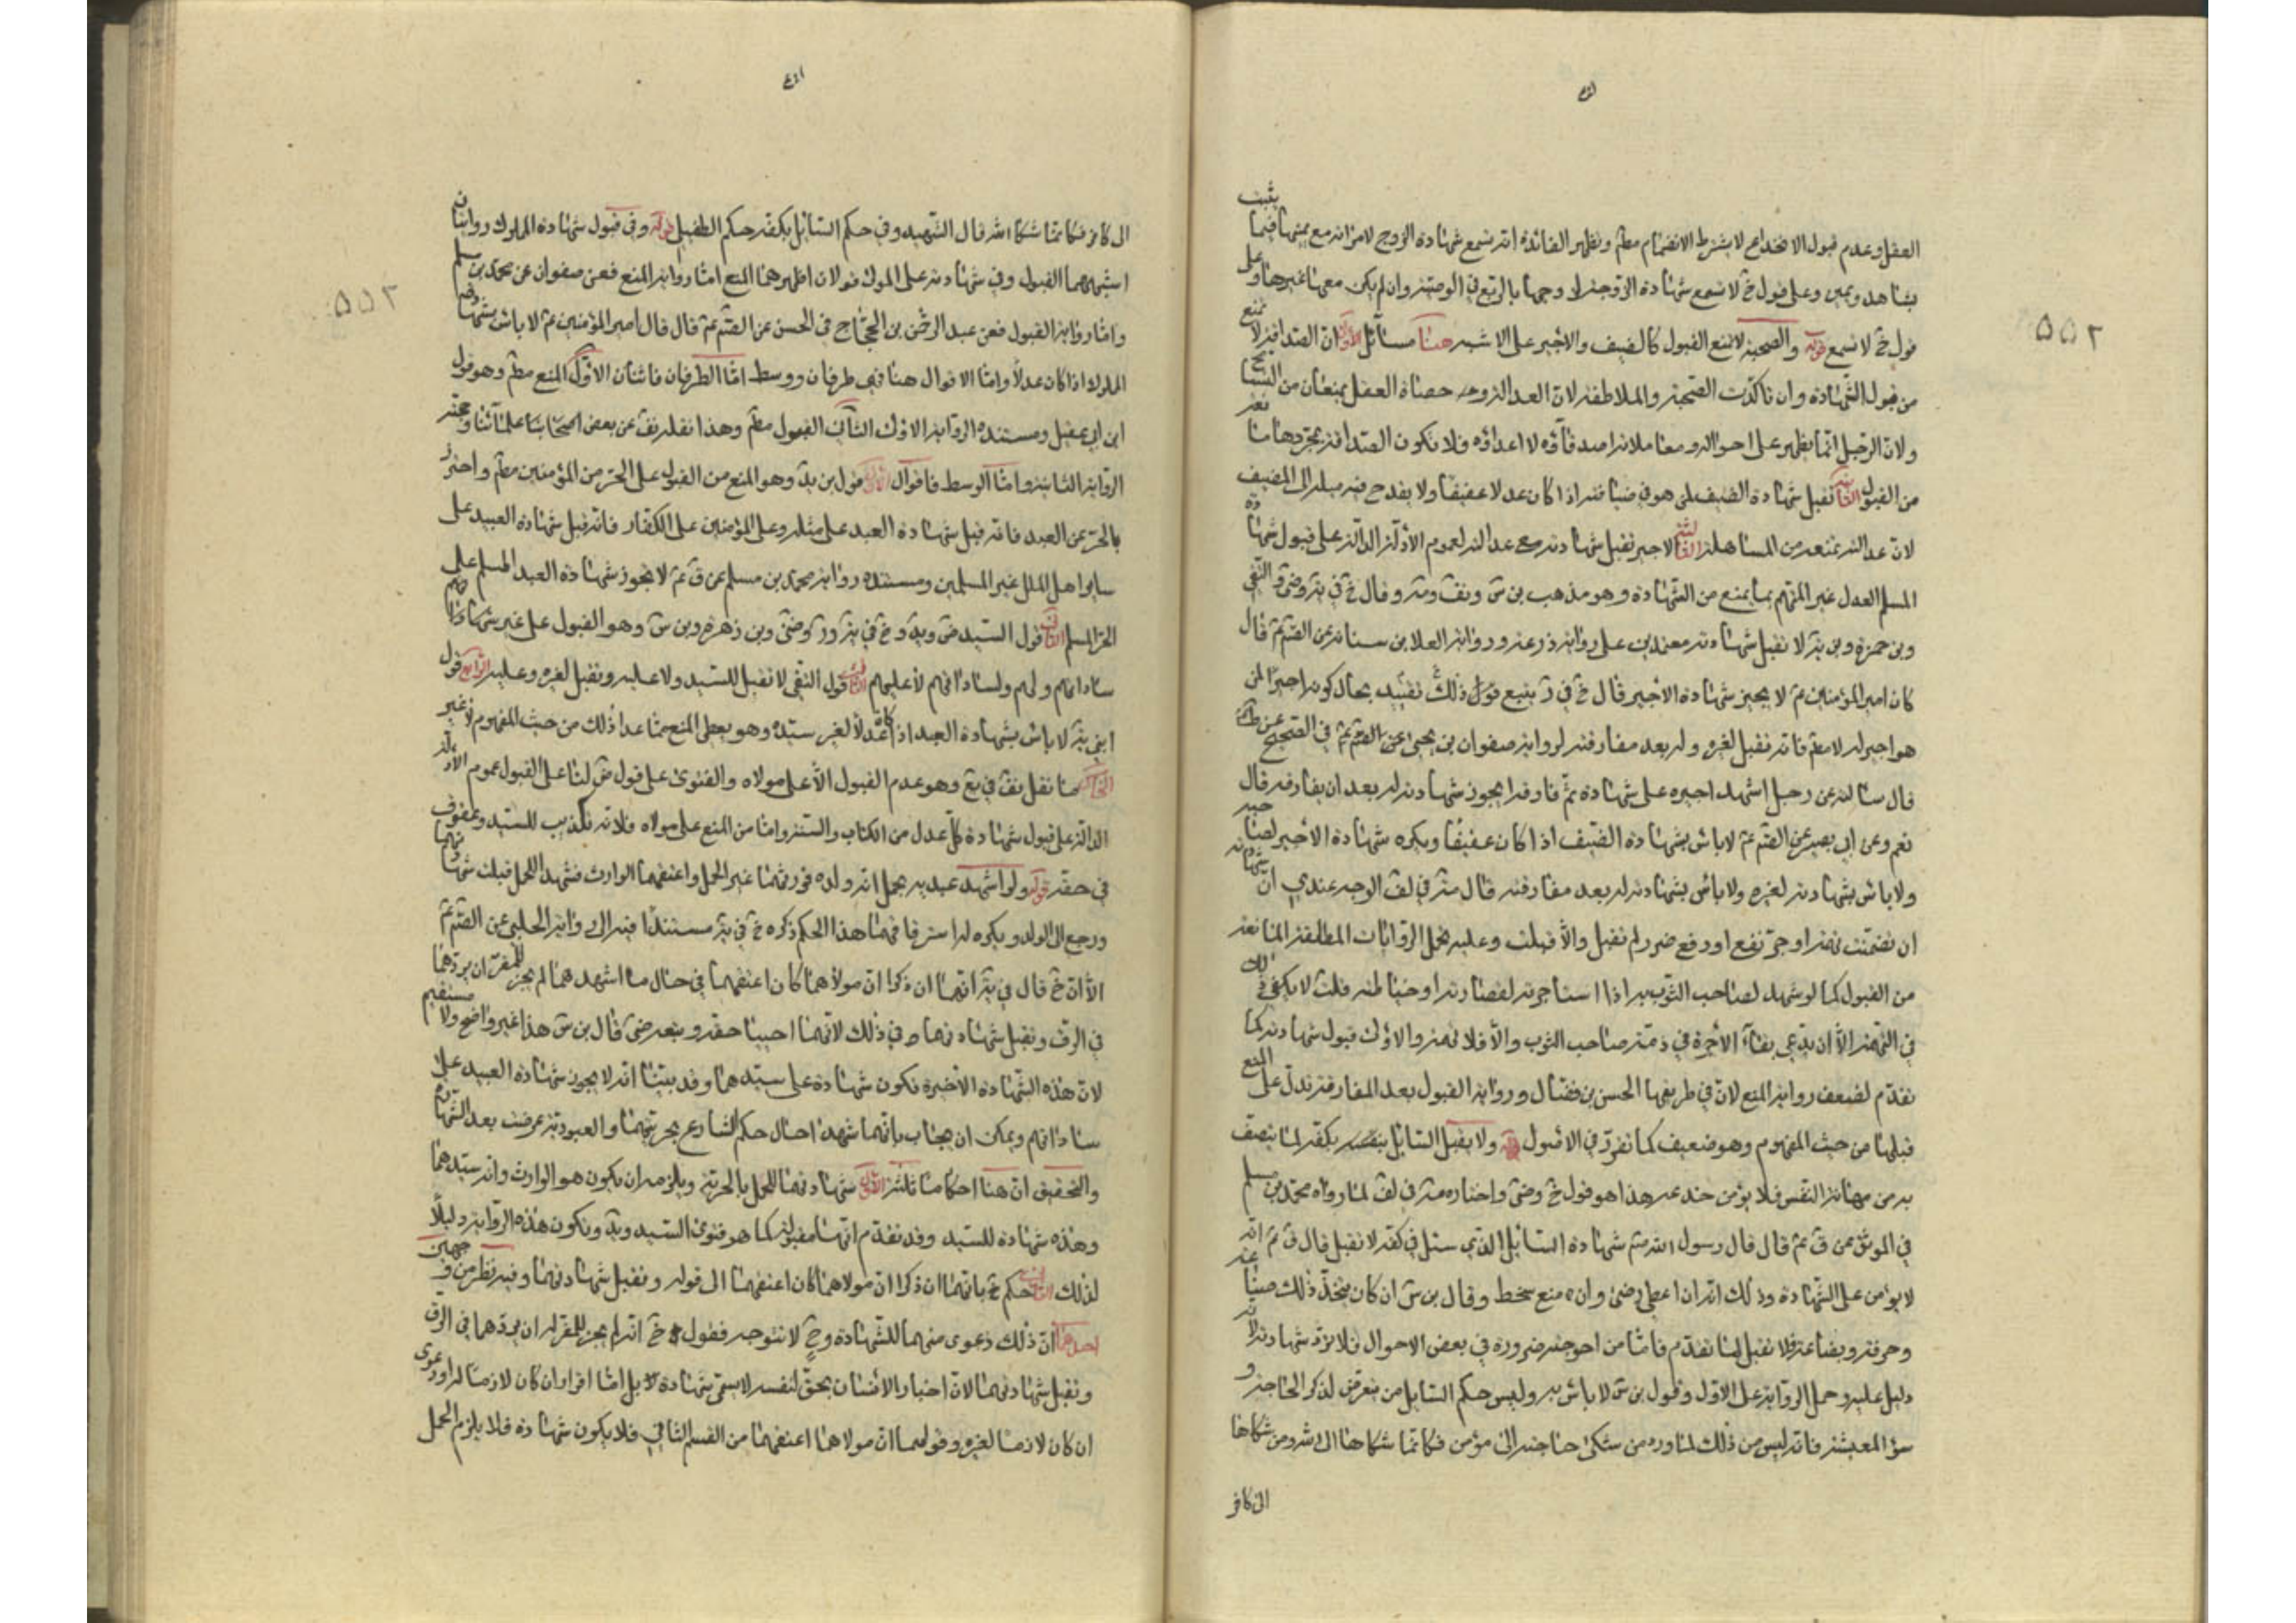 العقل وعدم قبول الانخداع لا يشترط الانضمام مطم وتظهر الفائدة انه تسمع شهادة الزوج لامراته مع يمينها فيما يثبت
بشاهد ويمين وعلى قول خ لا تسمع شهادة الزوجة لزوجها بالربع في الوصية وان لم يكن معها غيرها وعلى
قول خ لا تسمع قوله والصحبة لا تمنع القبول كالضيف والاجير على الاشبه هنا مسائل الاول ان الصداقة لا تمنع
من قبول الشهادة وان تاكدت الصحبة والملاطفة لان العدالة وحصاة العقل يمنعان من التسامح
ولان الرجل انما يظهر على احواله ومعاملاته اصدقاؤه لا اعداؤه فلا تكون الصداقة بمجردها مانعة
من القبول الثانية تقبل شهادة الضيف لمن هو في ضيافته اذا كان عدلا عفيفا ولا يقدح فيه ميله الى المضيف
لان عدالته تمنعه من المساهلة الثالثة الاجير تقبل شهادته مع عدالته لعموم الادلة الدالة على قبول شهادة
المسلم العدل غير المتهم بما يمنع من الشهادة وهو مذهب بن س ونقف ومتر وقال خ في يه وضى والتقى
وبن حمزة وبن يه لا تقبل شهادته معتمدين على رواية زرعة ورواية العلا بن سيابة عن الصم عم قال
كان امير المؤمنين عم لا يجيز شهادة الاجير قال خ في ر ينبغي قول ذلك تقييد بحال كونه اجيرا لمن
هو اجير له لا مطم فانه تقبل لغيره وله بعد مفارقته لرواية صفوان بن يحيى عن الصم عم في الصحيح
قال سالته عن رجل اشهد اجيره على شهادة ثم فارقه ايجوز شهادته له بعد ان يفارقه قال
نعم وعن ابي بصير عن الصم عم لا باس بشهادة الضيف اذا كان عفيفا ويكره شهادة الاجير لصاحبه
ولا باس بشهادته لغيره ولا باس بشهادته له بعد مفارقته قال متر في لف الوجه عندي ان شهادته
ان تضمنت تهمة او جر نفع او رفع ضرر لم تقبل والا قبلت وعليه تحمل الروايات المطلقة المانعة
من القبول كما لو شهد لصاحب الثوب به اذا استاجره لقصارته او خياطته قلت لا يكفي ذلك
في التهمة الا ان يدعي بقاء الاجرة في ذمة صاحب الثوب والا فلا تهمة والاول قبول شهادته لما
تقدم لضعف رواية المنع لان في طريقها الحسن بن فضال ورواية القبول بعد المفارقة تدل على المنع
قبلها من حيث المفهوم وهو ضعيف كما تقرر في الاصول قوله ولا يقبل السائل بكفه لما يتصف
به من مهانة النفس فلا يؤمن خدعه هذا هو قول خ وضى واختاره متر في لف لما رواه محمد بن مسلم
في الموثق عن ق عم قال قال رسول الله صم شهادة السائل الذي يسئل في كفه لا تقبل قال ق عم لانه
لا يؤمن على الشهادة وذلك انه ان اعطى رضى وان منع سخط وقال بن س ان كان يتخذ ذلك صناعة
وحرفة وبضاعة فلا تقبل لما تقدم فاما من احوجته ضرورة في بعض الاحوال فلا ترد شهادته لانه
دليل عليه وحمل الرواية على الاول وقول بن س لا باس به وليس حكم السايل من يتعرض لذكر الحاجة و
سؤ المعيشة فانه ليس من ذلك لما ورد من شكى حاجته الى مؤمن فكانما شكاها الى الله ومن شكاها
الى كافر
الى كافر فكانما شكا الله قال الشهيد وفي حكم السائل بكفه حكم الطفيلي قوله وفي قبول شهادة المملوك روايتان
اشهرهما القبول وفي شهادته على المولى قولان اظهرهما المنع اما رواية المنع فعن صفوان عن محمد بن مسلم
واما رواية القبول فعن عبد الرحمن بن الحجاج في الحسن عن الصم عم قال قال امير المؤمنين عم لا باس بشهادة
المملوك اذا كان عدلا واما الاقوال هنا فهي طرفان ووسط اما الطرفان فاثنان الاول المنع مطم وهو قول
ابن ابي عقيل ومستنده الرواية الاولى الثاني القبول مطم وهذا نقله نقف عن بعض اصحابنا علمائنا وحجته
الرواية الثانية واما الوسط فاقوال الاول قول بن يد وهو المنع من القبول على الحر من المؤمنين مطم واحترز
بالحر عن العبد فانه قبل شهادة العبد على مثله وعلى المؤمنين على الكفار فانه قبل شهادة العبيد على
ساير اهل الملل غير المسلمين ومستنده رواية محمد بن مسلم عن ق عم لا تجوز شهادة العبد المسلم على
الحر المسلم الثاني قول السيد ض ويد وخ في يه ور وضى وبن زهرة وبن س وهو القبول على غير
ساداتهم ولهم ولساداتهم لا عليهم الثالث قول التقى لا تقبل للسيد ولا عليه وتقبل لغيره وعليه الرابع قول
ابني يه لا باس بشهادة العبد اذا كان عدلا لغير سيده وهو يعطى المنع مما عدا ذلك من حيث المفهوم لا غير
الخامس ما نقل نقف في يع وهو عدم القبول الا على مولاه والفتوى على قول ض لنا على القبول عموم الادلة
الدالة على قبول شهادة كل عدل من الكتاب والسنة واما من المنع على مولاه فلانه تكذيب للسيد وعقوق
في حقه قوله ولو اشهد عبديه بحمل انه ولده فورثهما غير الحمل واعتقهما الوارث فشهدا للحمل قبلت شهادتهما
ورجع الى الولد ويكره له استرقاقهما هذا الحكم ذكره خ في يه مستندا فيه الى رواية الحلبي عن الصم عم
الا ان خ قال في يه انهما ان ذكرا ان مولاهما كان اعتقهما في حال ما اشهدهما لم يجز للمقر ان يردهما
في الرق وتقبل شهادتهما في ذلك لانهما احييا حقه وتبعه ضى قال بن س هذا غير واضح ولا مستقيم
لان هذه الشهادة الاخيرة تكون شهادة على سيدهما وقد بينا انه لا يجوز شهادة العبيد على
ساداتهم ويمكن ان يجاب بانهما شهدا حال حكم الشارع بحريتهما والعبودية عرضت بعد الشهادة
والتحقيق ان هنا احكاما ثلثة الاول شهادتهما للحمل بالحرية ويلزمه ان يكون هو الوارث وانه سيدهما
وهذه شهادة للسيد وقد تقدم انها مقبولة كما هو فتوى السيد ويد وتكون هذه الرواية دليلا
لذلك الثاني حكم خ بانهما ان ذكرا ان مولاهما كان اعتقهما الى قوله وتقبل شهادتهما وفيه نظر من وجهين
احدهما ان ذلك دعوى منهما لا شهادة وح لا تتوجه فقول خ انه لم يجز للمقر له ان يردهما في الرق
وتقبل شهادتهما لان اخبار الانسان بحق لنفسه لا يسمى شهادة بل اما اقرار ان كان لازما له او دعوى
ان كان لازما لغيره وقولهما ان مولاهما اعتقهما من القسم الثاني فلا يكون شهادة فلا يلزم الحمل
۵۵۲
۵۵۲